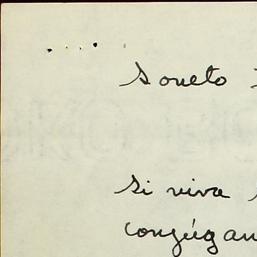 Soneto
Si viva
conjúgan